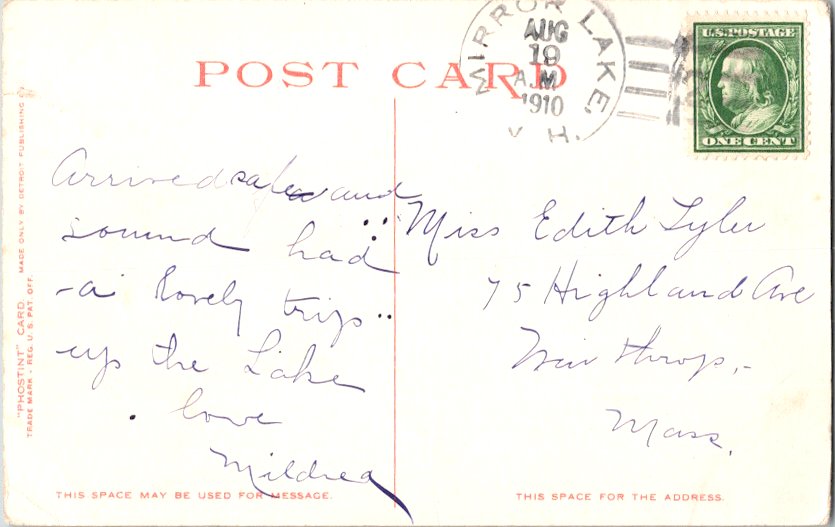 POST CARD
MIRROR LAKE,
AUG
19
A.M
1910
H.
U.S. POSTAGE
ONE CENT
Arrived safe and
sound had
a lovely trip
up the Lake
love
Mildred
Miss Edith Tyler
75 Highland Ave
Winthrop,
Mass.
"PHOSTINT" CARD. MADE ONLY BY DETROIT PUBLISHING
TRADE MARK - REG. U.S. PAT. OFF.
THIS SPACE MAY BE USED FOR MESSAGE.
THIS SPACE FOR THE ADDRESS.